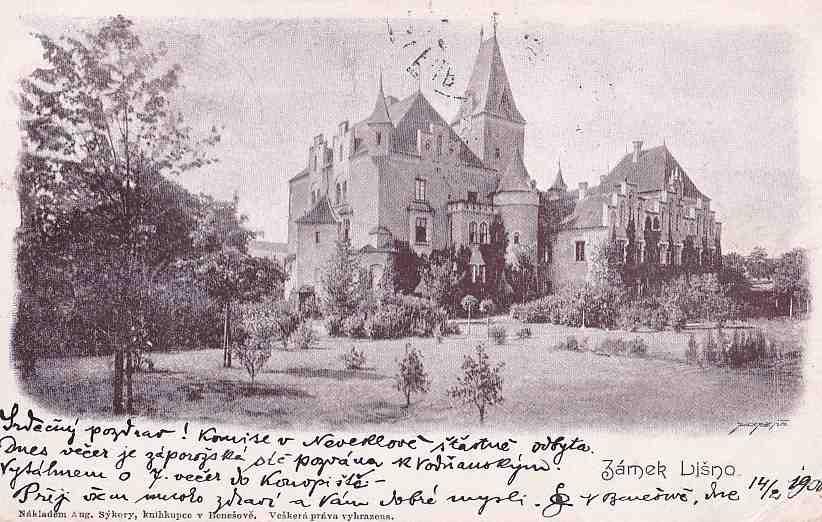 Srdečný pozdrav! Komise v Neveklově šťastně odbyta.
Dnes večer je záporožská pozvána k Vodňanským
Vytáhnem o 7. večer do Konopiště -
Zámek Lišno.
Přeji všem mnoho zdraví a Vám dobré mysli. v Benešově, dne 14/2
Nákladem Aug. Sýkory, knihkupce v Benešově. Veškerá práva vyhrazena.